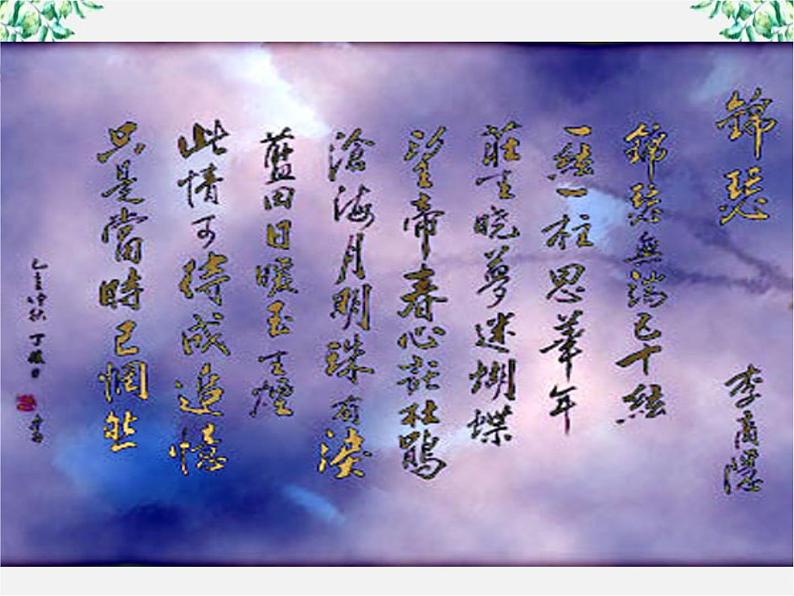 錦瑟
李商隱
錦瑟無端五十絃
一絃一柱思華年
莊生曉夢迷蝴蝶
望帝春心託杜鵑
滄海月明珠有淚
藍田日暖玉生煙
此情可待成追憶
只是當時已惘然
乙亥仲秋